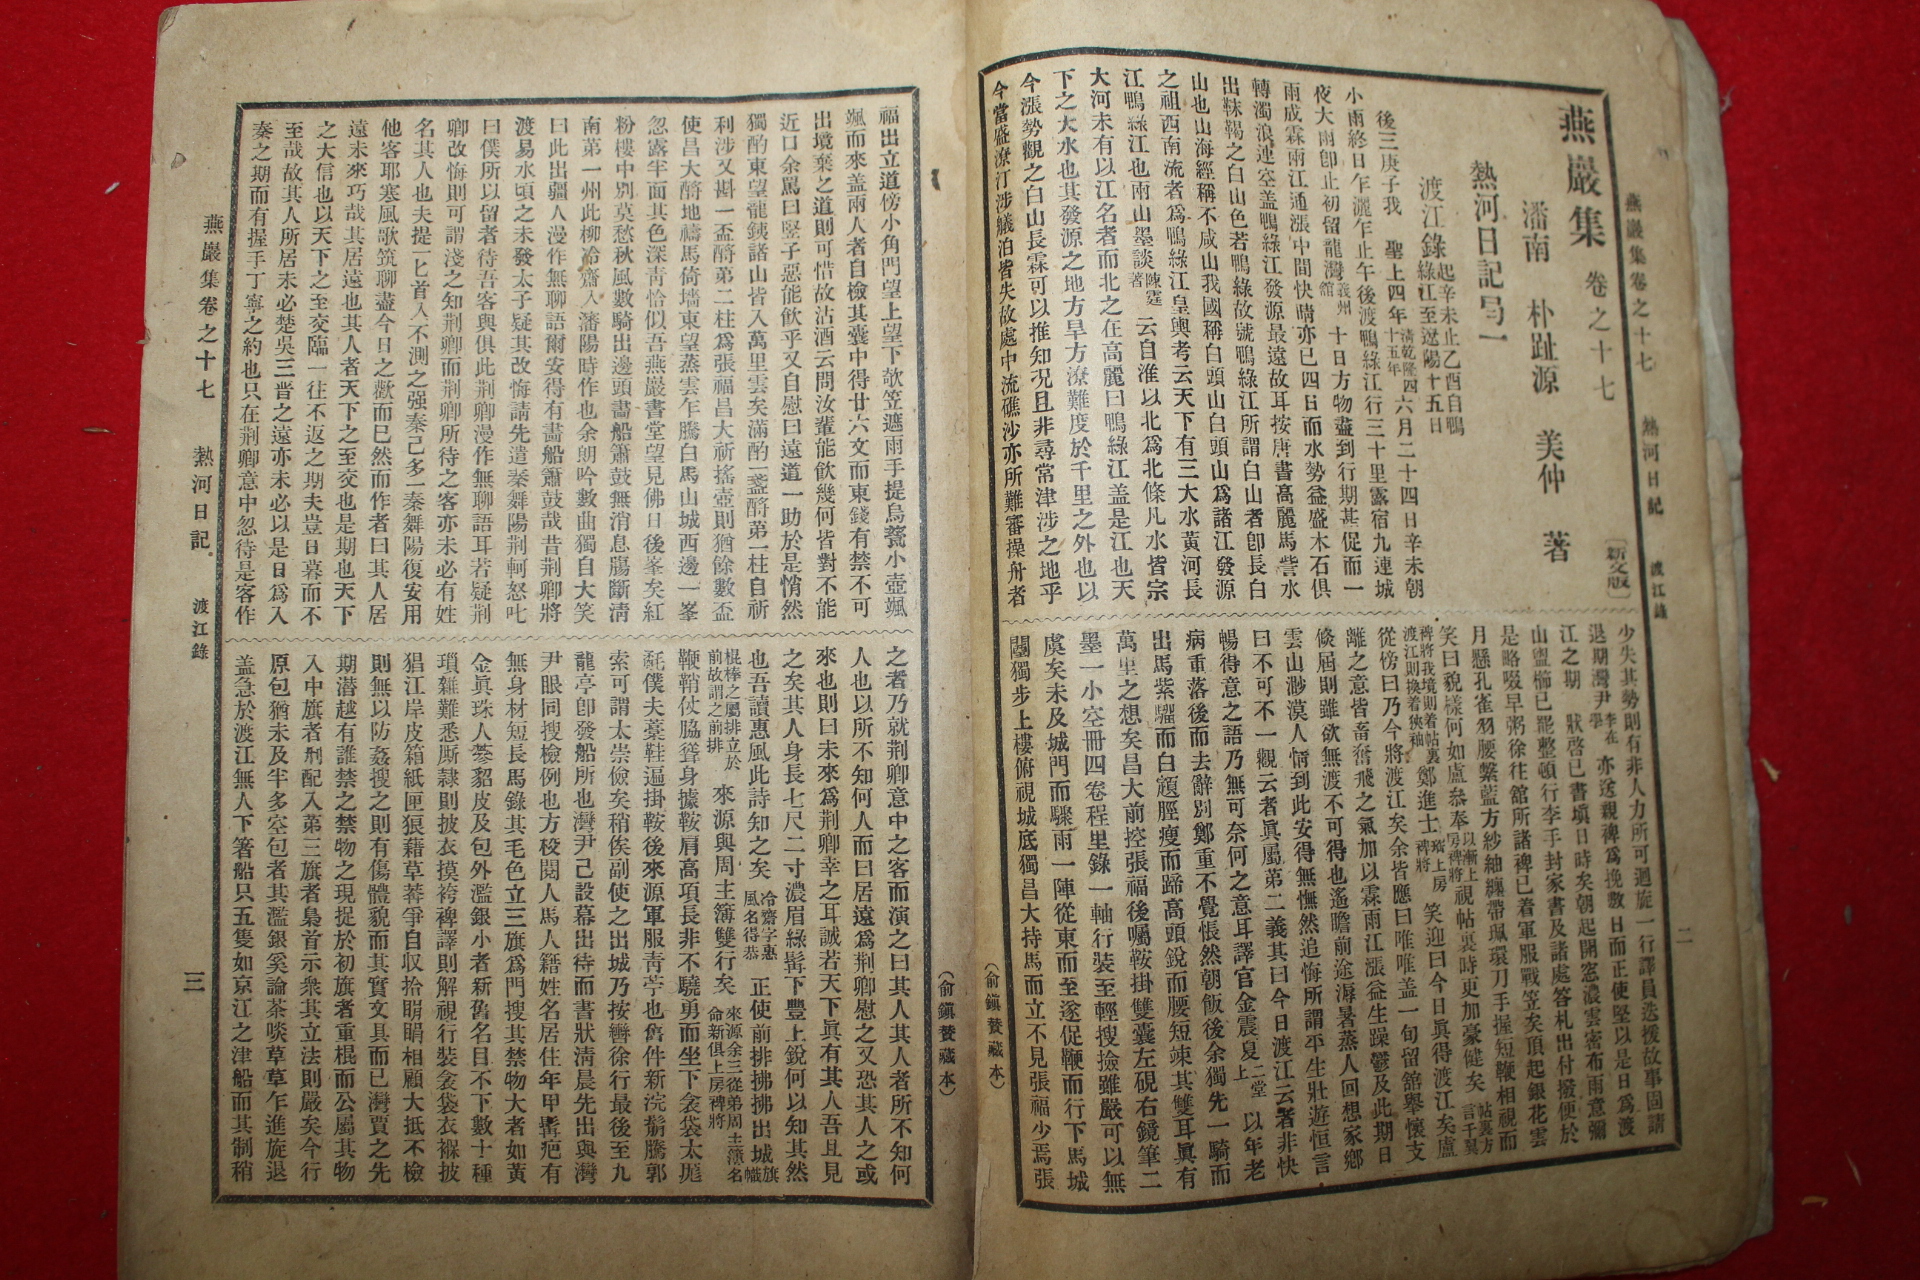 燕巖集卷之十七　熱河日記　渡江錄
二
燕巖集　卷之十七
〔新文版〕
潘南　朴趾源　美仲　著
熱河日記局一
渡江錄起辛未止乙酉自鴨綠江至遼陽十五日
後三庚子我　聖上四年淸乾隆四十五年六月二十四日辛未朝
小雨終日乍灑乍止午後渡鴨綠江行三十里露宿九連城
夜大雨卽止初留龍灣義州館十日方物盡到行期甚促而一
雨成霖兩江通漲中間快晴亦已四日而水勢益盛木石俱
轉濁浪連空盖鴨綠江發源最遠故耳按唐書高麗馬訾水
出靺鞨之白山色若鴨綠故號鴨綠江所謂白山者卽長白
山也山海經稱不咸山我國稱白頭山白頭山爲諸江發源
之祖西南流者爲鴨綠江皇輿考云天下有三大水黃河長
江鴨綠江也兩山墨談陳霆著云自淮以北爲北條凡水皆宗
大河未有以江名者而北之在高麗曰鴨綠江盖是江也天
下之大水也其發源之地方旱方潦難度於千里之外也以
今漲勢觀之白山長霖可以推知况且非尋常津涉之地乎
今當盛潦汀涉艤泊皆失故處中流礁沙亦所難審操舟者
少失其勢則有非人力所可迴旋一行譯員迭援故事固請
退期灣尹李在學亦送親裨爲挽數日而正使堅以是日爲渡
江之期　狀啓已書塡日時矣朝起開窓濃雲密布雨意彌
山盥櫛已罷整頓行李手封家書及諸處答札出付撥便於
是略啜早粥徐往舘所諸裨已着軍服戰笠矣頂起銀花雲
月懸孔雀羽腰繫藍方紗紬纏帶珮環刀手握短鞭相視而
笑曰貌樣何如盧參奉以漸上房裨將視帖裏時更加豪健矣帖裏方言千翼裨將我境則着帖裏渡江則換着狹袖鄭進士珏上房裨將笑迎曰今日眞得渡江矣盧
從傍曰乃今將渡江矣余皆應曰唯唯盖一旬留舘擧懷支
離之意皆畜奮飛之氣加以霖雨江漲益生躁鬱及此期日
倏屆則雖欲無渡不可得也遙瞻前途溽暑蒸人回想家鄕
雲山渺漠人情到此安得無憮然追悔所謂平生壯遊恒言
曰不可不一觀云者眞屬第二義其曰今日渡江云者非快
暢得意之語乃無可奈何之意耳譯官金震夏二堂上以年老
病重落後而去辭別鄭重不覺悵然朝飯後余獨先一騎而
出馬紫騮而白題脛瘦而蹄高頭銳而腰短竦其雙耳眞有
萬里之想矣昌大前控張福後囑鞍掛雙囊左硯右鏡筆二
墨一小空冊四卷程里錄一軸行裝至輕搜撿雖嚴可以無
虞矣未及城門而驟雨一陣從東而至遂促鞭而行下馬城
闉獨步上樓俯視城底獨昌大持馬而立不見張福少焉張
(兪鎭贊藏本)
福出立道傍小角門望上望下欹笠遮雨手提烏瓷小壺颯
颯而來盖兩人者自檢其囊中得廿六文而東錢有禁不可
出境棄之道則可惜故沽酒云問汝輩能飮幾何皆對不能
近口余罵曰竪子惡能飮乎又自慰曰遠道一助於是悄然
獨酌東望龍鐵諸山皆入萬里雲矣滿酌一盞酹第一柱自祈
利涉又斟一盃酹第二柱爲張福昌大祈搖壺則猶餘數盃
使昌大酹地禱馬倚墻東望蒸雲乍騰白馬山城西邊一峯
忽露半面其色深靑恰似吾燕巖書堂望見佛日後峯矣紅
粉樓中別莫愁秋風數騎出邊頭畵船簫鼓無消息膓斷淸
南第一州此柳冷齋入瀋陽時作也余朗吟數曲獨自大笑
曰此出疆人漫作無聊語爾安得有畵船簫鼓哉昔荊卿將
渡易水頃之未發太子疑其改悔請先遣秦舞陽荊軻怒叱
曰僕所以留者待吾客與俱此荊卿漫作無聊語耳若疑荊
卿改悔則可謂淺之知荊卿而荊卿所待之客亦未必有姓
名其人也夫提一匕首入不測之强秦已多一秦舞陽復安用
他客耶寒風歌筑聊盡今日之歡而已然而作者曰其人居
遠未來巧哉其居遠也其人者天下之至交也是期也天下
之大信也以天下之至交臨一往不返之期夫豈日暮而不
至哉故其人所居未必楚吳三晋之遠亦未必以是日爲入
秦之期而有握手丁寧之約也只在荊卿意中忽待是客作
之者乃就荊卿意中之客而演之曰其人其人者所不知何
人也以所不知何人而曰居遠爲荊卿慰之又恐其人之或
來也則曰未來爲荊卿幸之耳誠若天下眞有其人吾且見
之矣其人身長七尺二寸濃眉綠髯下豐上銳何以知其然
也吾讀惠風此詩知之矣冷齋字惠風名得恭正使前排拂拂出城旗幟棍棒之屬排立於前故謂之前排來源與周主簿雙行矣來源余三從弟周主簿名命新俱上房裨將
鞭鞘仗脇聳身據鞍肩高項長非不驍勇而坐下衾袋太厖
毦僕夫藁鞋遍掛鞍後來源軍服靑苧也舊件新浣鬅騰郭
索可謂太崇儉矣稍俟副使之出城乃按轡徐行最後至九
龍亭卽發船所也灣尹已設幕出待而書狀淸晨先出與灣
尹眼同搜檢例也方校閱人馬人籍姓名居住年甲髯疤有
無身材短長馬錄其毛色立三旗爲門搜其禁物大者如黃
金眞珠人蔘貂皮及包外濫銀小者新舊名目不下數十種
瑣雜難悉厮隷則披衣摸袴裨譯則解視行裝衾袋衣褓披
猖江岸皮箱紙匣狼藉草莽爭自收拾睊睊相顧大抵不檢
則無以防姦搜之則有傷體貌而其實文具而已灣賈之先
期潛越有誰禁之禁物之現捉於初旗者重棍而公屬其物
入中旗者刑配入第三旗者梟首示衆其立法則嚴矣今行
原包猶未及半多空包者其濫銀奚論茶啖草草乍進旋退
盖急於渡江無人下箸船只五隻如京江之津船而其制稍
(兪鎭贊藏本)
燕巖集卷之十七　熱河日記　渡江錄
三